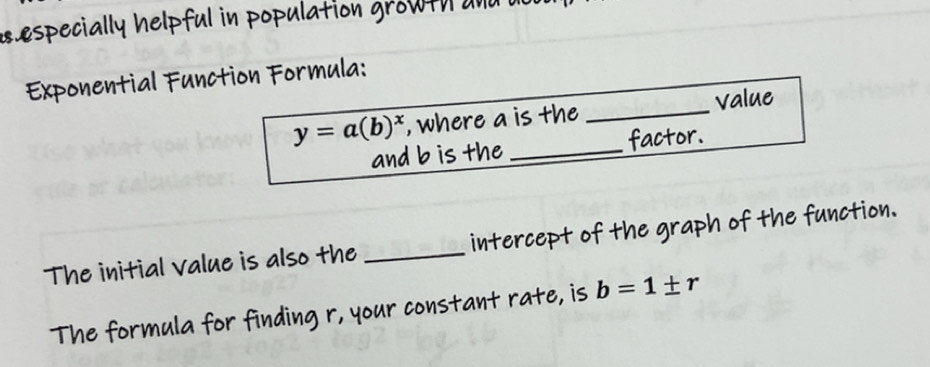 especially helpful in population growth and
Exponential Function Formula:
y = a(b)ˣ, where a is the __________ value
and b is the __________ factor.
The initial value is also the ________ intercept of the graph of the function.
The formula for finding r, your constant rate, is b = 1 ± r